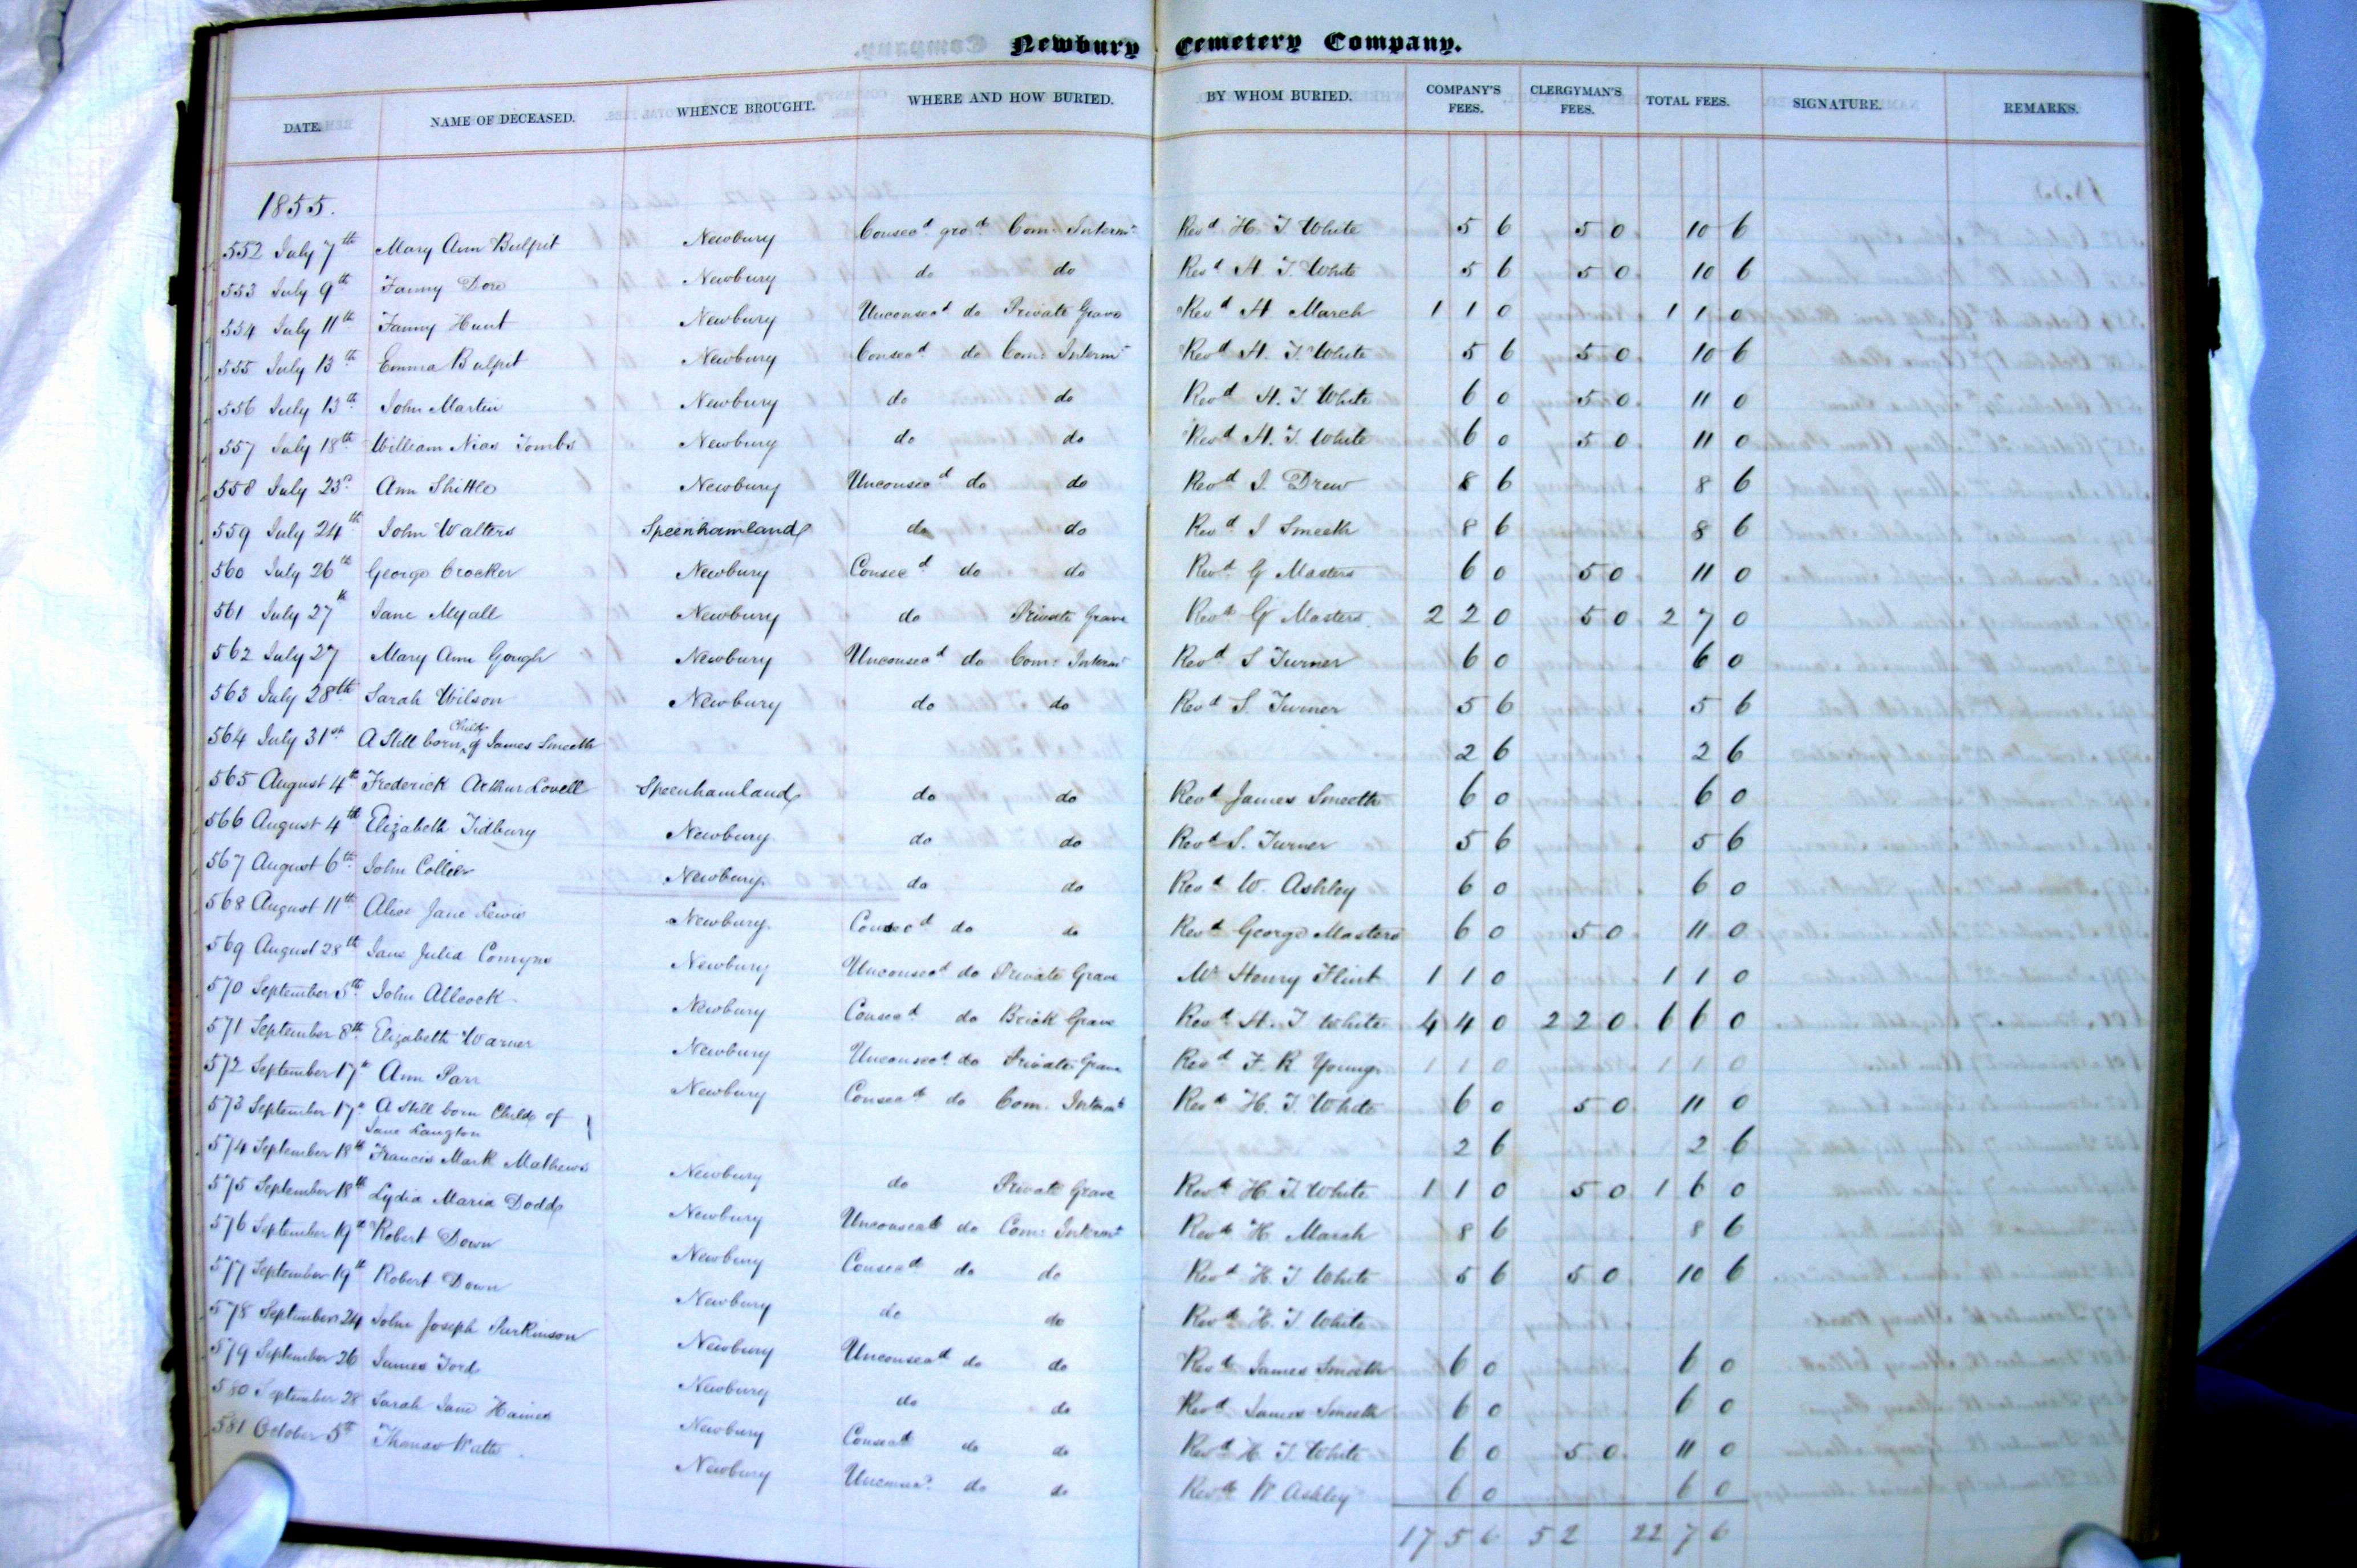 Newbury Cemetery Company.
DATE. NAME OF DECEASED. WHENCE BROUGHT. WHERE AND HOW BURIED. BY WHOM BURIED. COMPANY'S FEES. CLERGYMAN'S FEES. TOTAL FEES. SIGNATURE. REMARKS.
1855.
552 July 7th Mary Ann Bulpit Newbury Consecd grod Com: Intermt Revd H. J. White 5 6 5 0 10 6
553 July 9th Fanny Dore Newbury do do Revd H. J. White 5 6 5 0 10 6
554 July 11th Fanny Hunt Newbury Unconsecd do Private Grave Revd H. March 1 1 0 1 1 0
555 July 13th Emma Bulpit Newbury Consecd do Com: Intermt Revd H. J. White 5 6 5 0 10 6
556 July 13th John Martin Newbury do do Revd H. J. White 6 0 5 0 11 0
557 July 18th William Nias Tombs Newbury do do Revd H. J. White 6 0 5 0 11 0
558 July 23d Ann Shittle Newbury Unconsecd do do Revd J. Drew 8 6 8 6
559 July 24th John Walters Speenhamland do do Revd J Smeeth 8 6 8 6
560 July 26th George Crocker Newbury Consecd do do Revd G Masters 6 0 5 0 11 0
561 July 27th Jane Myall Newbury do Private Grave Revd G Masters 2 2 0 5 0 2 7 0
562 July 27 Mary Ann Gough Newbury Unconsecd do Com: Intermt Revd S Turner 6 0 6 0
563 July 28th Sarah Wilson Newbury do do Revd S. Turner 5 6 5 6
564 July 31st A Still born Child of James Smeeth 2 6 2 6
565 August 4th Frederick Arthur Lovell Speenhamland do do Revd James Smeeth 6 0 6 0
566 August 4th Elizabeth Tidbury Newbury do do Revd S. Turner 5 6 5 6
567 August 6th John Collier Newbury do do Revd W. Ashley 6 0 6 0
568 August 11th Alice Jane Lewis Newbury Consecd do do Revd George Masters 6 0 5 0 11 0
569 August 28th Jane Julia Comyns Newbury Unconsecd do Private Grave Mr Henry Flint 1 1 0 1 1 0
570 September 5th John Allcock Newbury Consecd do Brick Grave Revd H. J White 4 4 0 2 2 0 6 6 0
571 September 8th Elizabeth Warner Newbury Unconsecd do Private Grave Revd F. R Young 1 1 0 1 1 0
572 September 17th Ann Parr Newbury Consecd do Com. Intermt Revd H. J. White 6 0 5 0 11 0
573 September 17th A Still born Child of
Jane Langton 2 6 2 6
574 September 18th Francis Mark Mathews Newbury do Private Grave Revd H. J. White 1 1 0 5 0 1 6 0
575 September 18th Lydia Maria Dodd Newbury Unconsecd do Com: Intermt Revd H March 8 6 8 6
576 September 19th Robert Down Newbury Consecd do do Revd H. J White 5 6 5 0 10 6
577 September 19th Robert Down Newbury do do Revd H. J. White
578 September 24 John Joseph Parkinson Newbury Unconsecd do do Revd James Smeeth 6 0 6 0
579 September 26 James Ford Newbury do do Revd James Smeeth 6 0 6 0
580 September 28 Sarah Jane Haines Newbury Consecd do do Revd H. J. White 6 0 5 0 11 0
581 October 5th Thomas Watts Newbury Unconsd do do Revd W Ashley 6 0 6 0
17 5 6 5 2 22 7 6